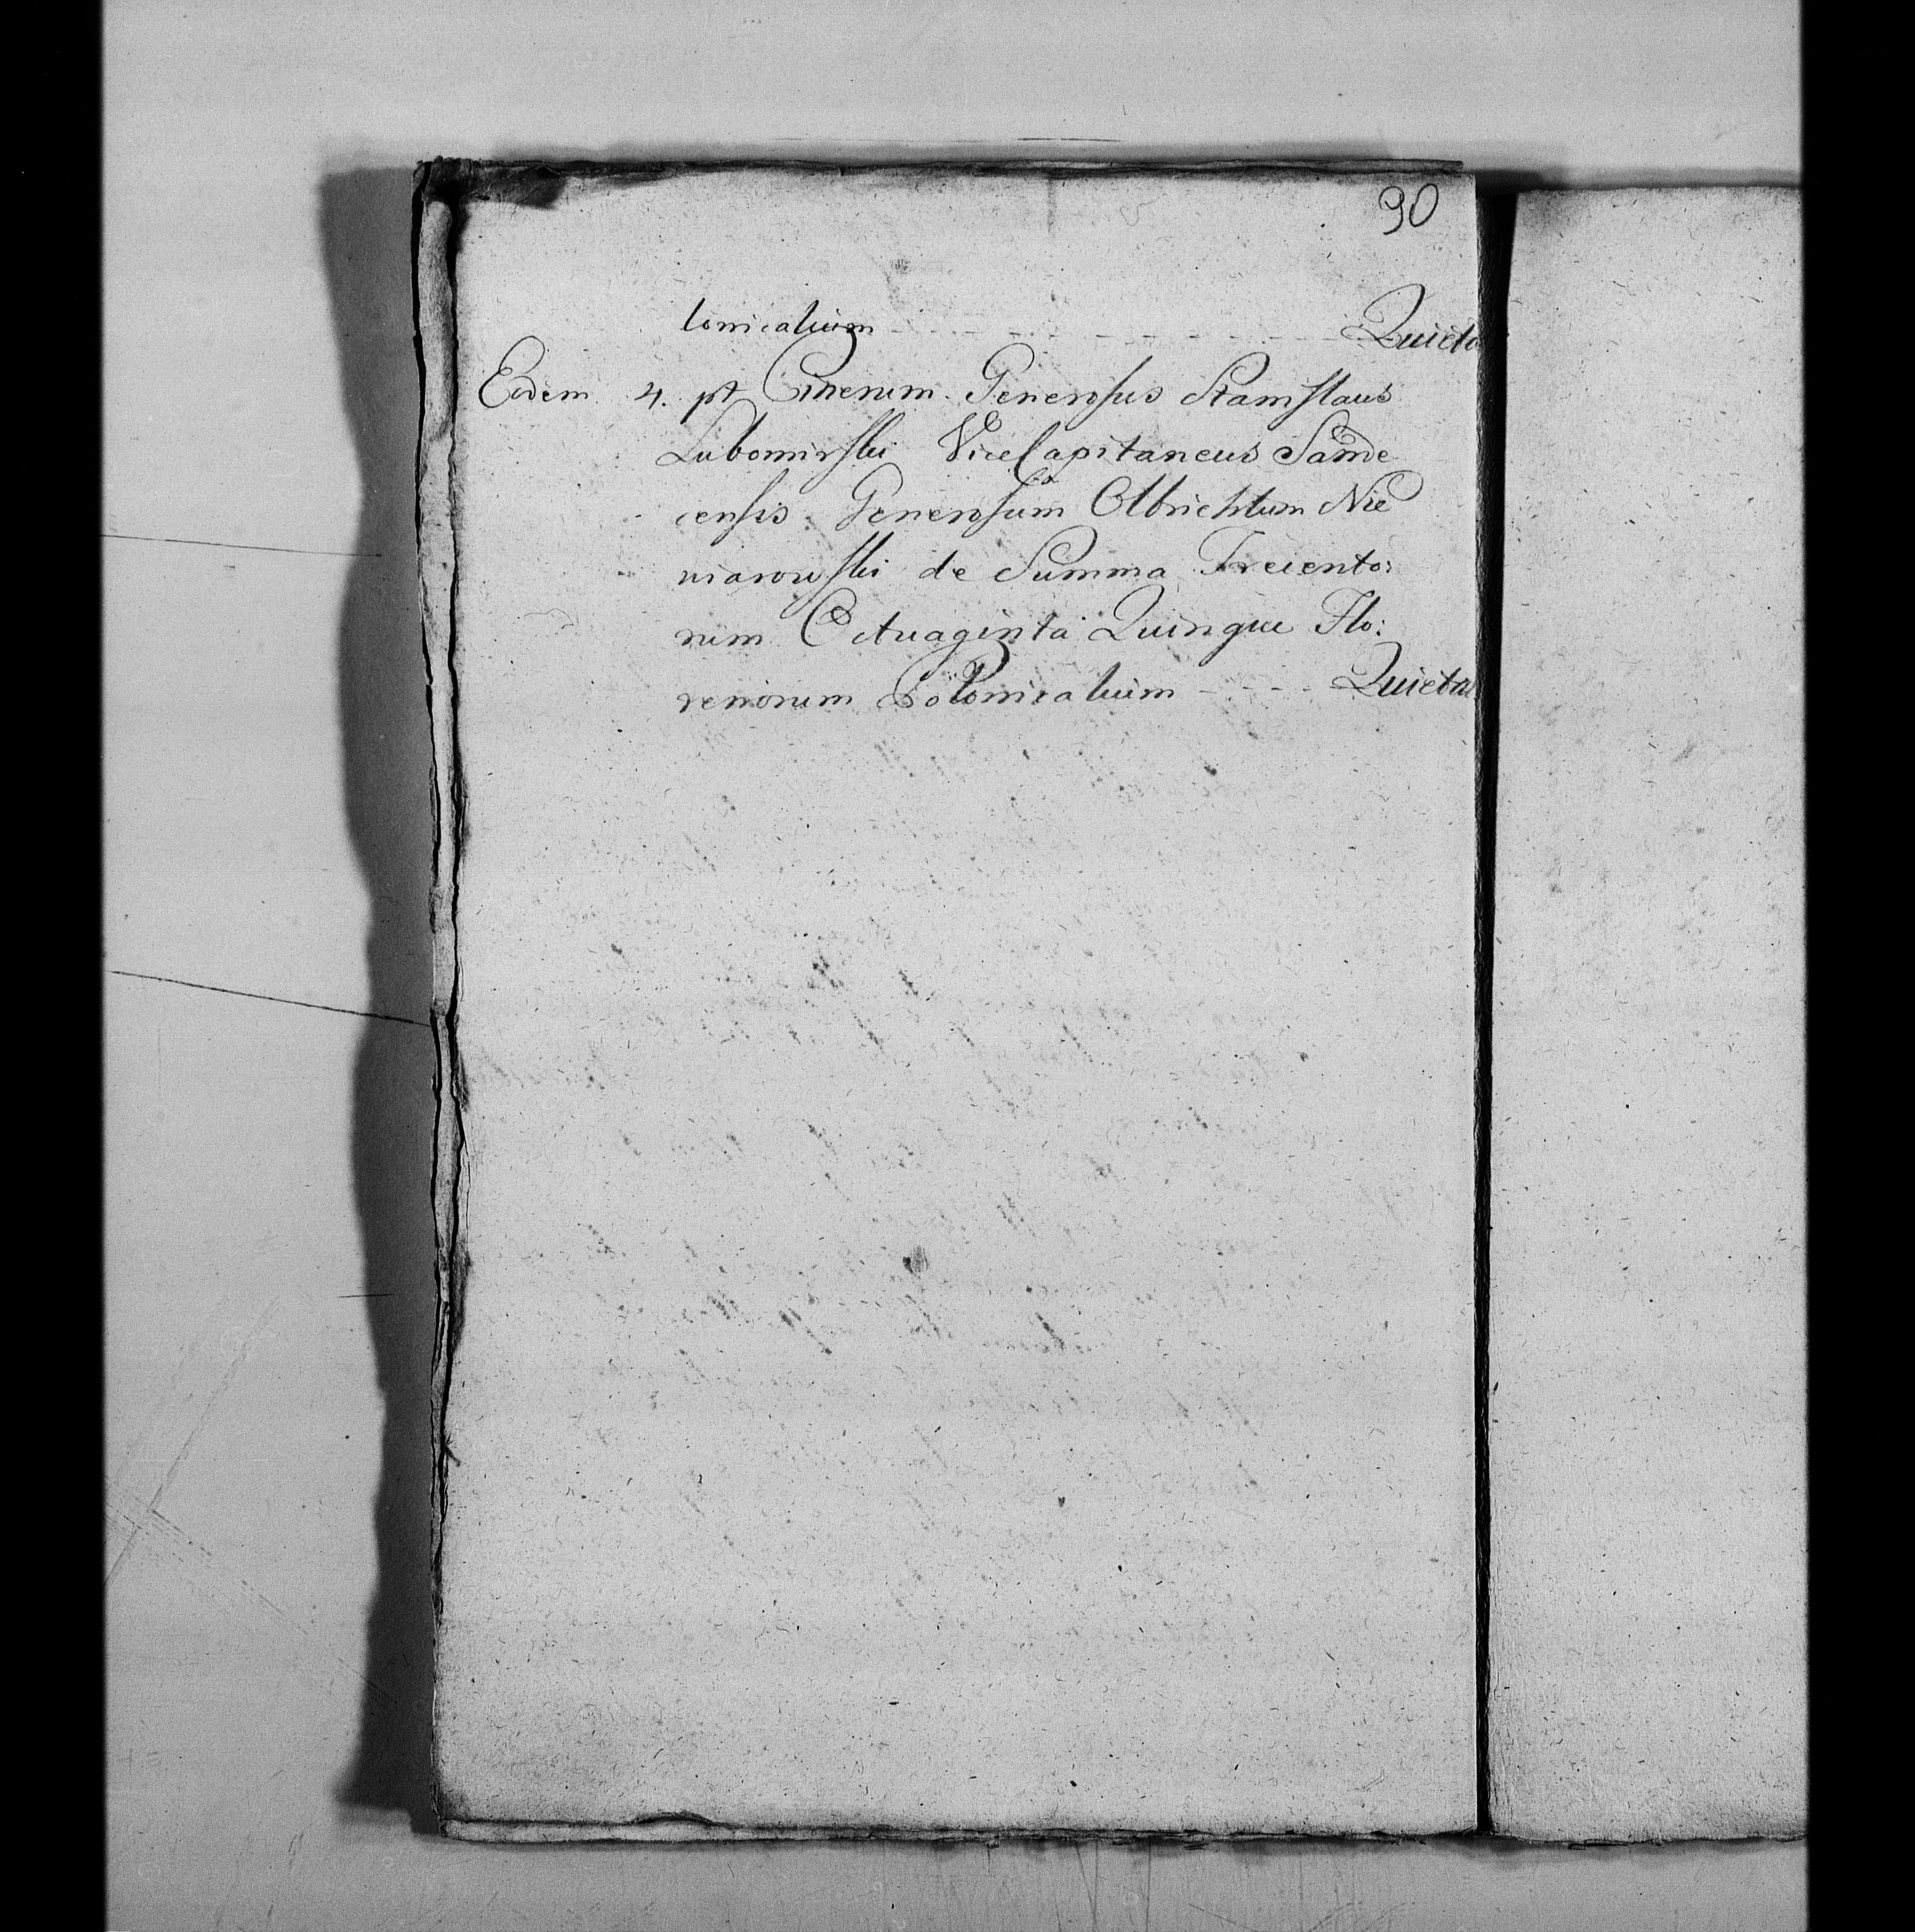 90
lonicalium - - - - - - - - - - Quieta
Eodem 4. pt Cinerum Generosus Stanislaus
Lubomirski ViceCapitaneus Sande
censis Generosum Olbrichtum Nie
wiarowski de Summa Trecento:
rum Octuaginta Quinque Flo:
renorum Polonicalium - - - - Quietat